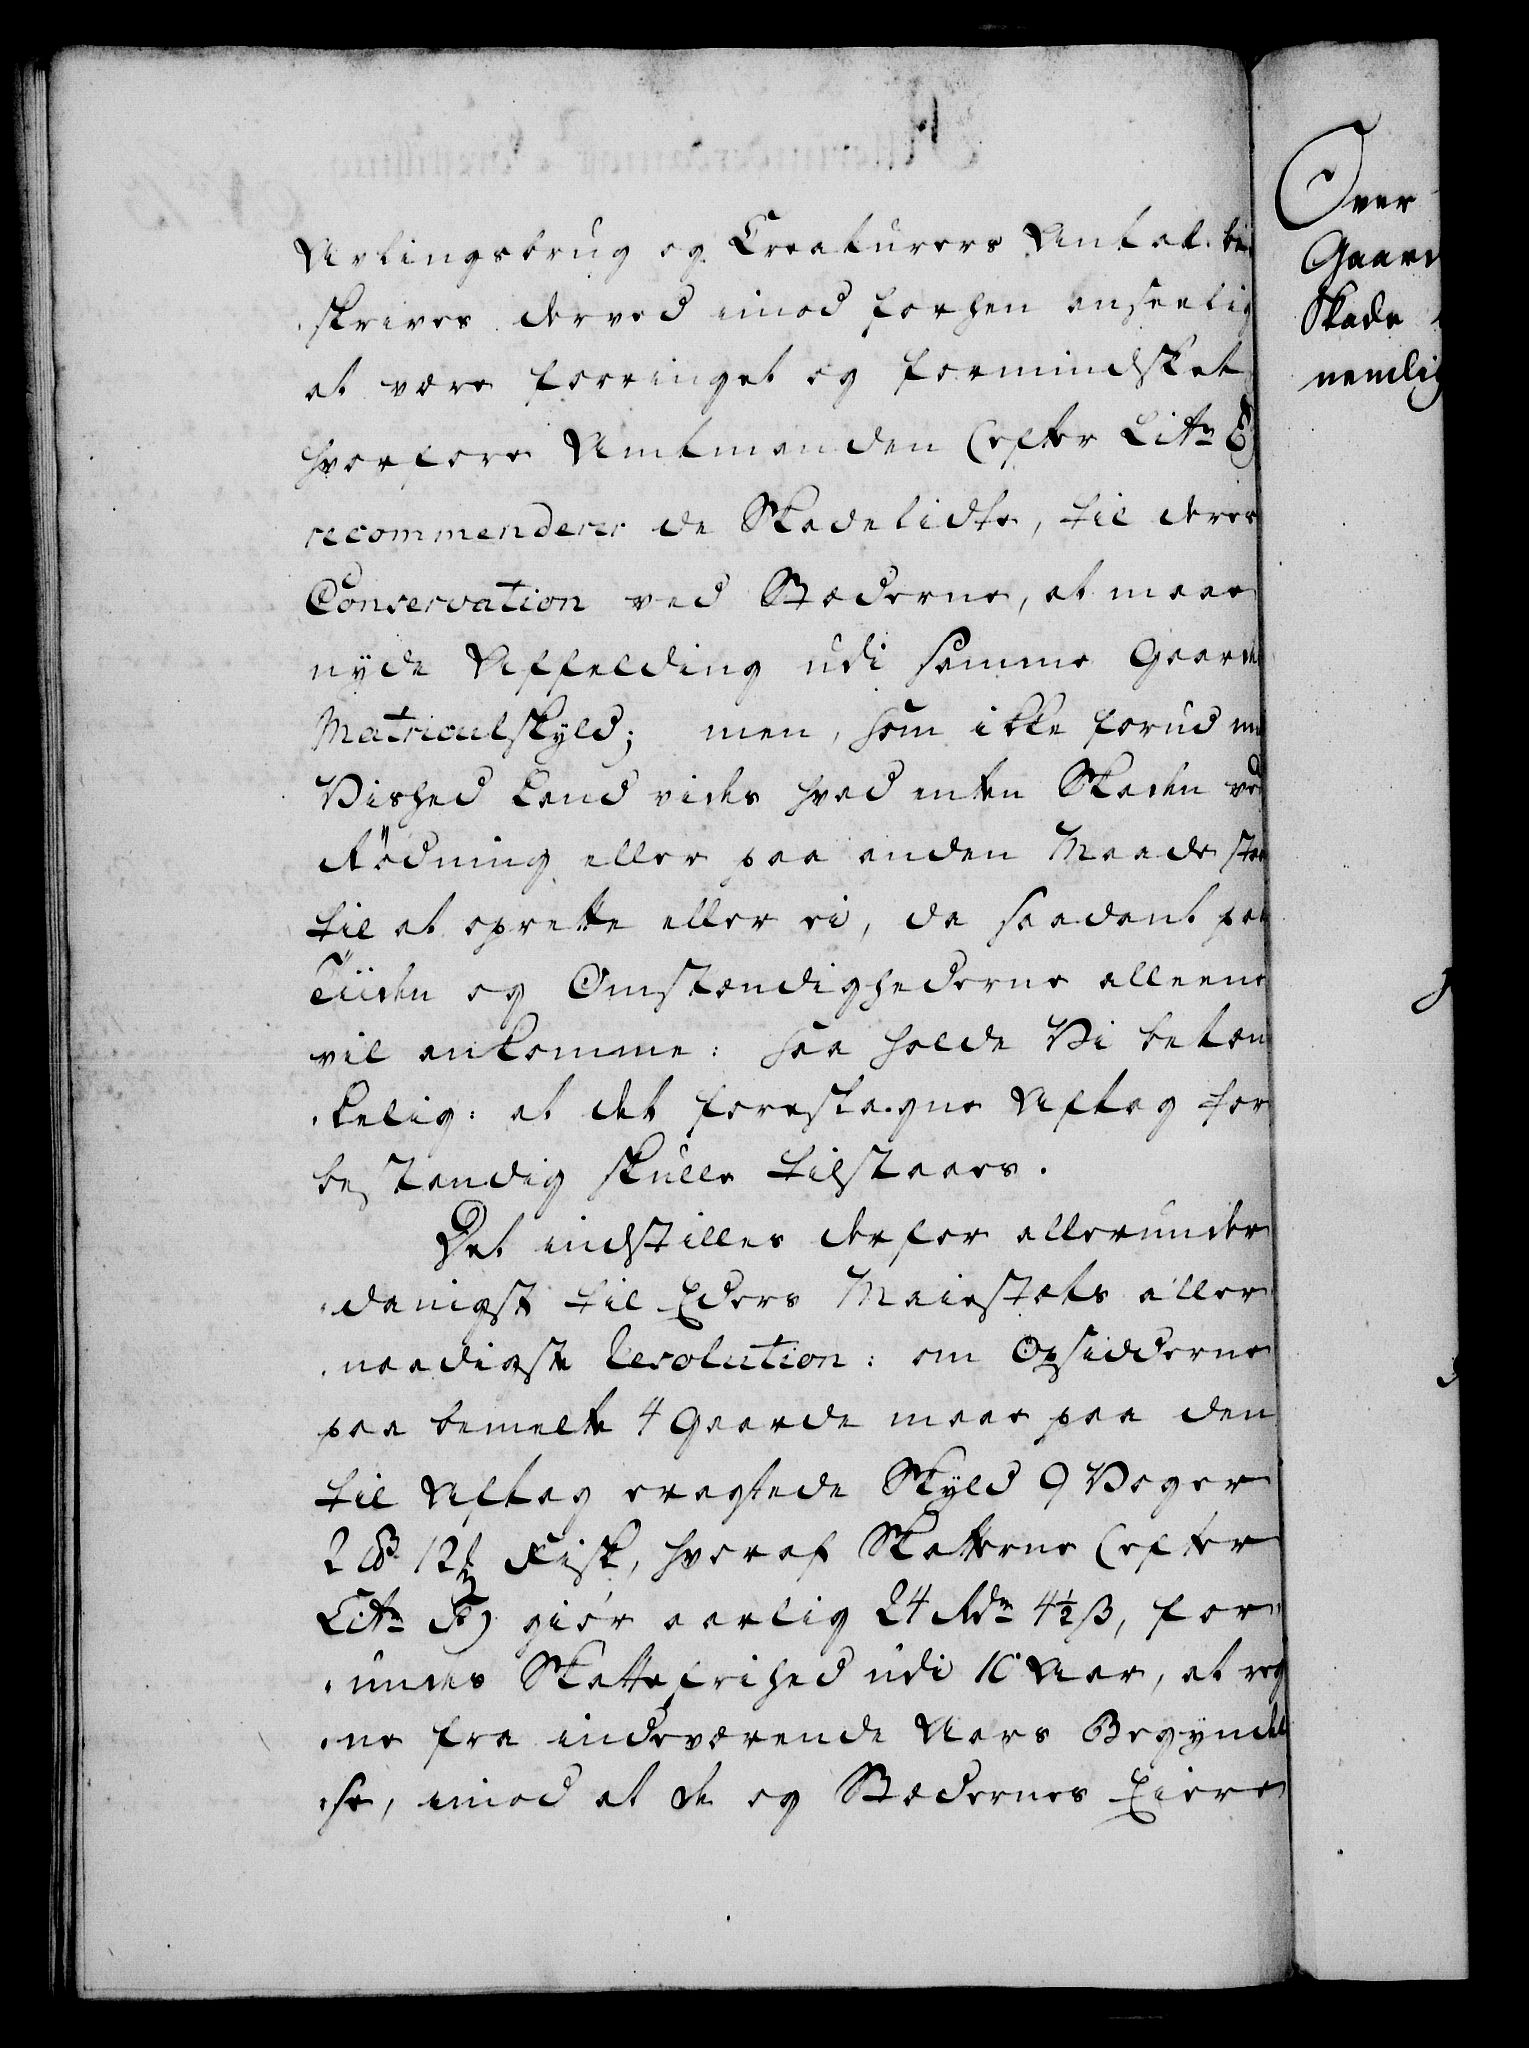 Avlingsbrug og Creaturers Antal be
skrives derved imod forhen anseelig
at være forringet og formindsket
hvorfore Amtmanden (efter Litr E)
recommenderer de Skadelidte, til deres
Conservation ved Stæderne, at maae
nÿde Affelding udi samme Gaarde
Matriculskÿld; men, som ikke forud med
Vished kand vides hvad enten Skaden ved
Rödning eller paa anden Maade staar
til at oprette eller ei, da saadant paa
Tiiden og Omstændighederne alleene
vil ankomme: saa holde Vi betæn
kelig: at det foreslagne Aftag for
bestandig skulle tilstaaes.
Det indstilles derfor allerunder
danigst til Eders Maiestæts aller
naadigste Resolution: om Opsidderne
paa bemelte 4 Gaarde maae paa den
til Aftag eragtede Skÿld 9 Voger
2 12 Fisk, hvoraf Skatterne (efter
Litr F) giör aarlig 24 Rdr 4½ ß, for
undes Skattefrihed udi 10 Aar, at reg
ne fra indeværende Aars Begÿndel
se, imod at de og Stædernes Eiere
Over
Gaard
Skade
nemlig